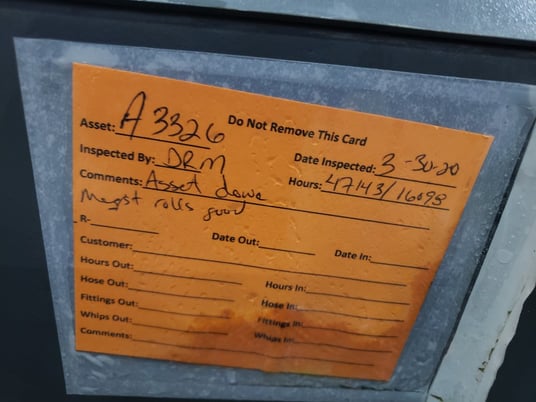 Do Not Remove This Card
Asset: A 3326
Inspected By: DRM Date Inspected: 3-30-20
Comments: Asset done Hours: 47143/16098
rolls good
R-
Customer: Date Out: Date In:
Hours Out: Hours In:
Hose Out: Hose In:
Fittings Out: Fittings In:
Whips Out: Whips In:
Comments: